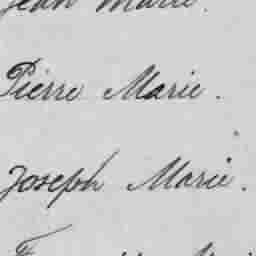 Jean Marie.
Pierre Marie.
Joseph Marie.